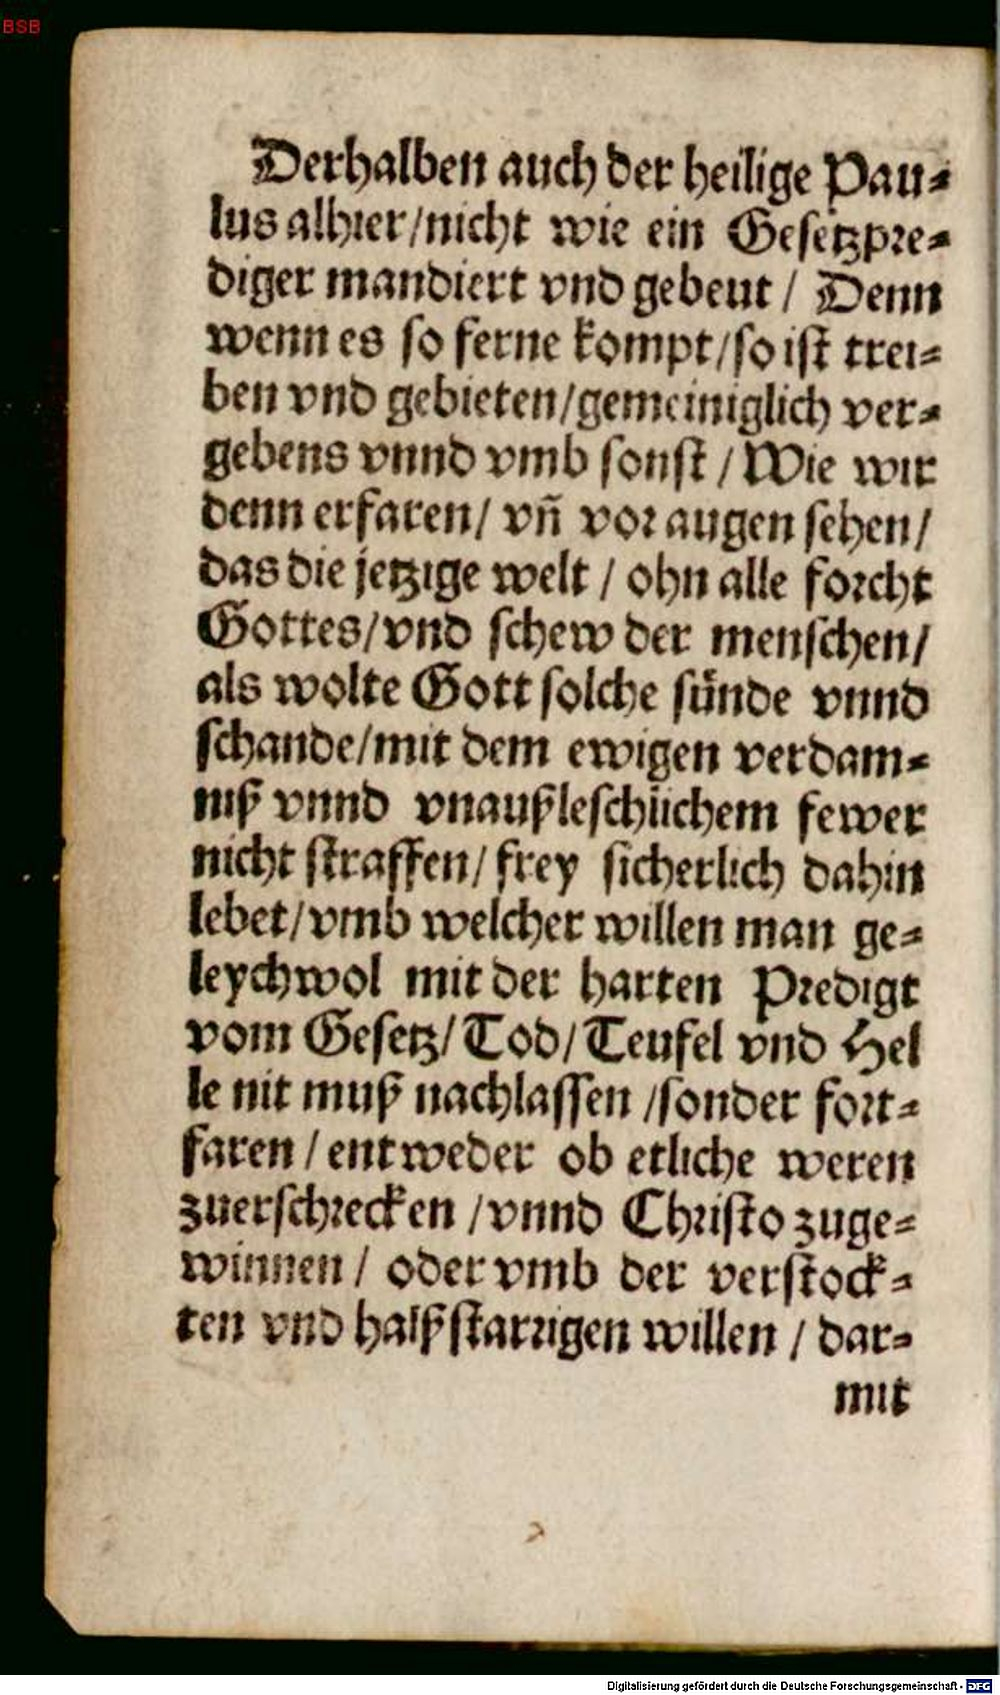 BSB
Derhalben auch der heilige Pau⸗
lus alhier/nicht wie ein Gesetzpre⸗
diger mandiert vnd gebeut / Denn
wenn es so ferne kompt/so ist trei⸗
ben vnd gebieten/gemeiniglich ver⸗
gebens vnnd vmb sonst / Wie wir
denn erfaren/ vñ vor augen sehen/
das die jetzige welt / ohn alle forcht
Gottes/vnd schew der menschen/
als wolte Gott solche sünde vnnd
schande/mit dem ewigen verdam⸗
niß vnnd vnaußleschlichem fewer
nicht straffen/ frey sicherlich dahin
lebet/vmb welcher willen man ge⸗
leychwol mit der harten Predigt
vom Gesetz/ Tod/ Teufel vnd Hel
le nit muß nachlassen /sonder fort⸗
faren / entweder ob etliche weren
zuerschrecken /vnnd Christo zuge⸗
winnen / oder vmb der verstock⸗
ten vnd halßstarrigen willen / dar⸗
mit
Digitalisierung gefördert durch die Deutsche Forschungsgemeinschaft - DFG